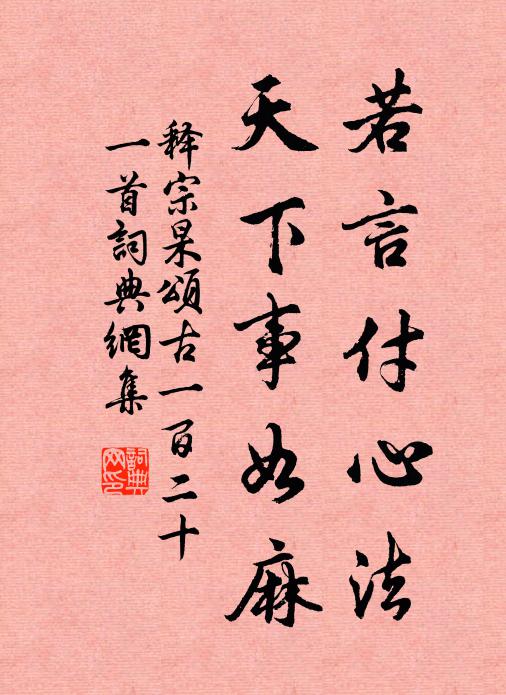 若言付心法
天下事如麻
释宗杲頌古一百二十
一首詞典網集
詞典
网印